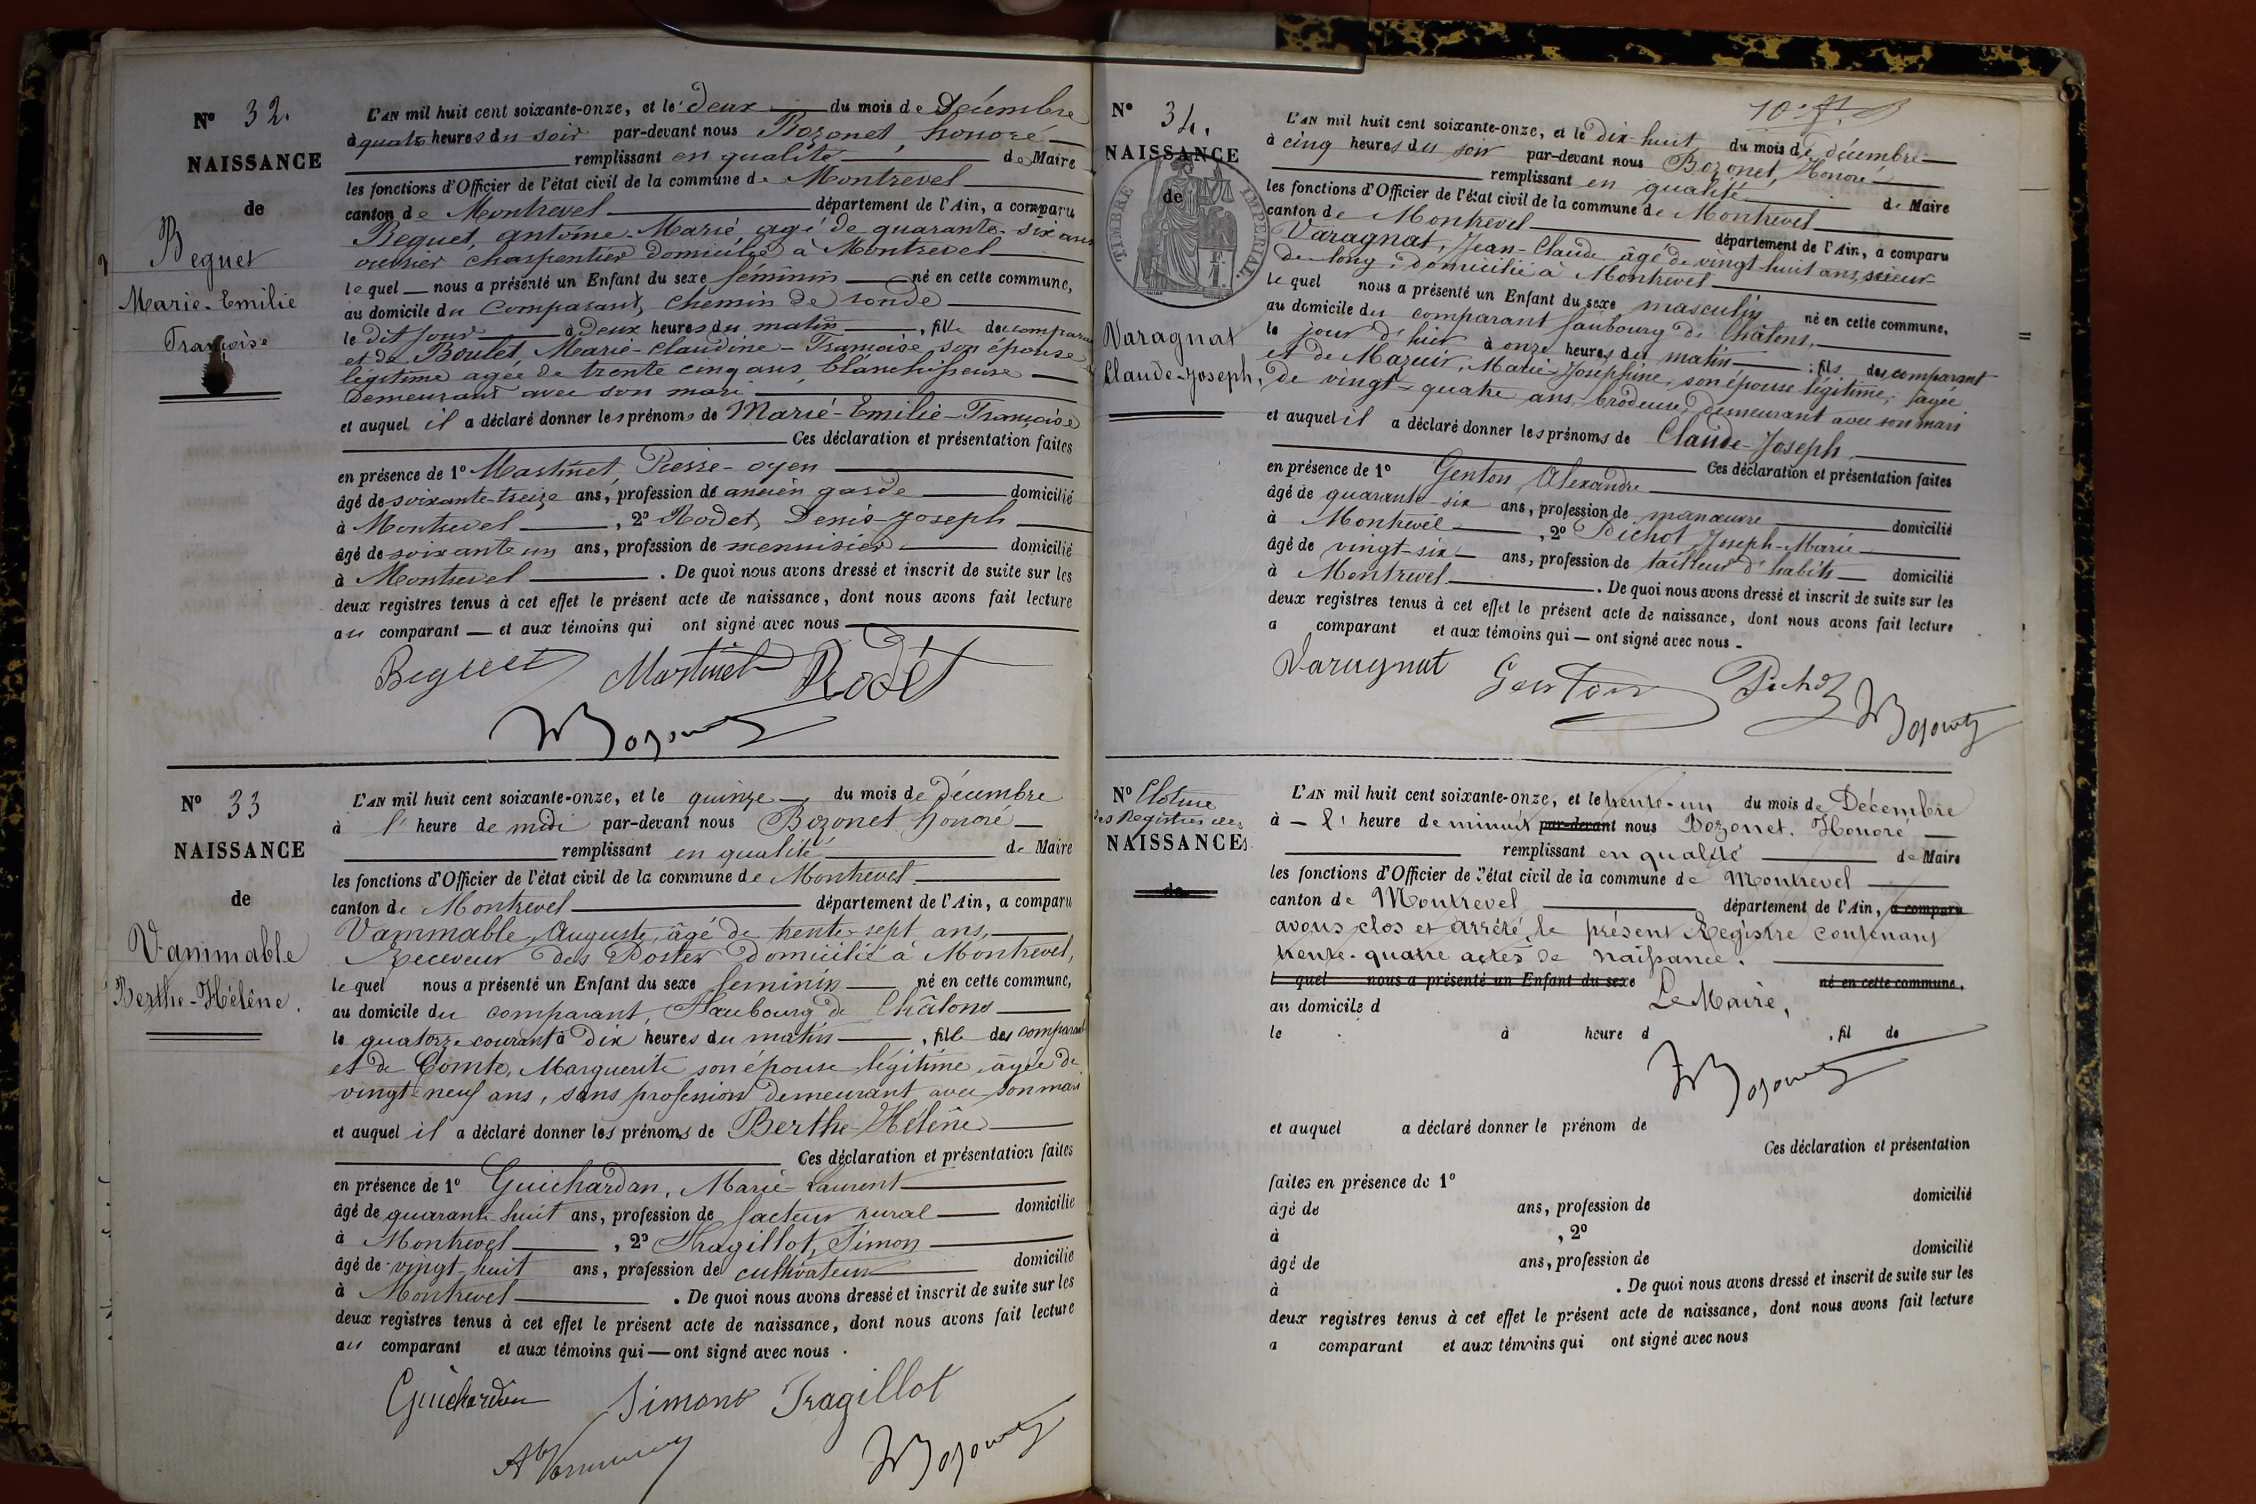 N° 32.
NAISSANCE
de
Beguet
Marie-Emilie
Françoise
L'AN mil huit cent soixante-onze, et le deux du mois de Décembre
à quatre heures du soir par-devant nous Bozonet, honoré
remplissant en qualité de Maire
les fonctions d'Officier de l'état civil de la commune de Montrevel
canton de Montrevel département de l'Ain, a comparu
Beguet, antoine-Marie agé de quarante-six ans
ouvrier charpentier domicilié à Montrevel
lequel nous a présenté un Enfant du sexe féminin né en cette commune,
au domicile du comparant, chemin de ronde
le dit jour à deux heures du matin, fille du comparant
et de Boulet, Marie-Claudine-Françoise son épouse
légitime agée de trente cinq ans, blanchisseuse
demeurant avec son mari
et auquel il a déclaré donner les prénoms de Marie-Emilie-Françoise
Ces déclaration et présentation faites
en présence de 1° Martinet, Pierre-oyen
âgé de soixante-treize ans, profession de ancien garde domicilié
à Montrevel, 2° Rodet, Denis-Joseph
âgé de soixante un ans, profession de menuisier domicilié
à Montrevel. De quoi nous avons dressé et inscrit de suite sur les
deux registres tenus à cet effet le présent acte de naissance, dont nous avons fait lecture
au comparant et aux témoins qui ont signé avec nous
Beguet Martinet Rodet
Bozonet
N° 33
NAISSANCE
de
Vammable
Berthe-Hélène.
L'AN mil huit cent soixante-onze, et le quinze du mois de Décembre
à l'heure de midi par-devant nous Bozonet honoré
remplissant en qualité de Maire
les fonctions d'Officier de l'état civil de la commune de Montrevel
canton de Montrevel département de l'Ain, a comparu
Vammable, Auguste, âgé de trente-sept ans,
Receveur des Postes domicilié à Montrevel,
lequel nous a présenté un Enfant du sexe féminin né en cette commune,
au domicile du comparant, Faubourg de Châlons
le quatorze courant à dix heures du matin, fille du comparant
et de Comte, Marguerite son épouse légitime âgée de
vingt-neuf ans, sans profession demeurant avec son mari
et auquel il a déclaré donner les prénoms de Berthe-Hélène
Ces déclaration et présentation faites
en présence de 1° Guichardan, Marie-Laurent
âgé de quarante-huit ans, profession de facteur rural domicilié
à Montrevel, 2° Tragillot, Simon
âgé de vingt-huit ans, profession de cultivateur domicilié
à Montrevel. De quoi nous avons dressé et inscrit de suite sur les
deux registres tenus à cet effet le présent acte de naissance, dont nous avons fait lecture
au comparant et aux témoins qui ont signé avec nous.
Guichardan Simont Tragillot
Bozonet
N° 34.
NAISSANCE
de
TIMBRE IMPERIAL
Varagnat
Claude-Joseph.
L'AN mil huit cent soixante-onze, et le dix-huit du mois de décembre
à cinq heures du soir par-devant nous Bozonet, Honoré
remplissant en qualité de Maire
les fonctions d'Officier de l'état civil de la commune de Montrevel
canton de Montrevel département de l'Ain, a comparu
Varagnat, Jean-Claude âgé de vingt huit ans, scieur
de long, domicilié à Montrevel
lequel nous a présenté un Enfant du sexe masculin né en cette commune,
au domicile du comparant faubourg de Châlons,
le jour d'hier à onze heures du matin, fils du comparant
et de Mazuir, Marie-Joséphine, son épouse légitime, âgée
de vingt-quatre ans, brodeuse, demeurant avec son mari
et auquel il a déclaré donner les prénoms de Claude-Joseph.
Ces déclaration et présentation faites
en présence de 1° Genton Alexandre
âgé de quarante-six ans, profession de manœuvre domicilié
à Montrevel, 2° Pichot Joseph-Marie
âgé de vingt-six ans, profession de tailleur d'habits domicilié
à Montrevel. De quoi nous avons dressé et inscrit de suite sur les
deux registres tenus à cet effet le présent acte de naissance, dont nous avons fait lecture
a comparant et aux témoins qui ont signé avec nous.
Varagnat Genton Pichot Bozonet
N° Cloture
des Registres des
NAISSANCES
de
L'AN mil huit cent soixante-onze, et le trente-un du mois de Décembre
à l'heure de minuit par-devant nous Bozonet, Honoré
remplissant en qualité de Maire
les fonctions d'Officier de l'état civil de la commune de Montrevel
canton de Montrevel département de l'Ain, a comparu
avons clos et arrêté, le présent Registre contenant
trente-quatre actes de naissance.
l quel nous a présenté un Enfant du sexe né en cette commune,
au domicile d Le Maire,
le à heure d , fil de
Bozonet
et auquel a déclaré donner le prénom de
Ces déclaration et présentation
faites en présence de 1°
âgé de ans, profession de domicilié
à , 2°
âgé de ans, profession de domicilié
à . De quoi nous avons dressé et inscrit de suite sur les
deux registres tenus à cet effet le présent acte de naissance, dont nous avons fait lecture
a comparant et aux témoins qui ont signé avec nous